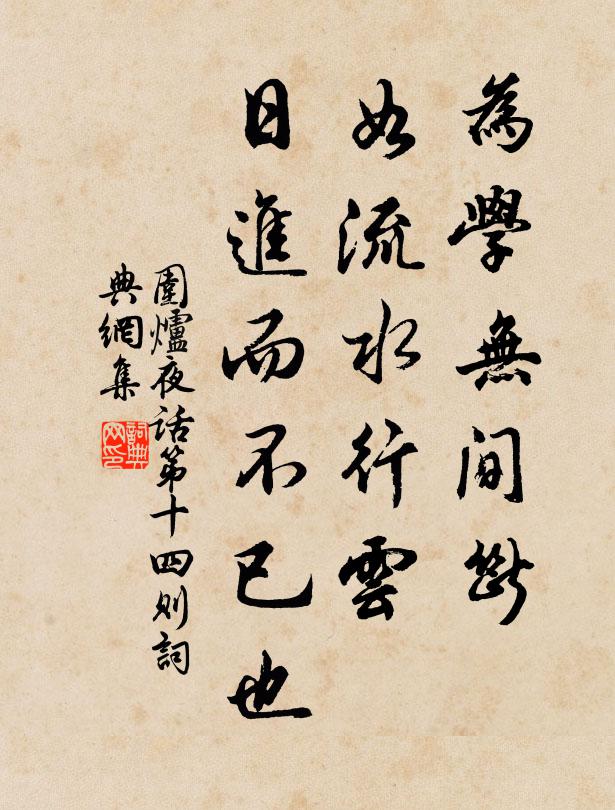 為學無間斷
如流水行雲
日進而不已也
圍爐夜話第十四則詞
典網集
詞典
网印